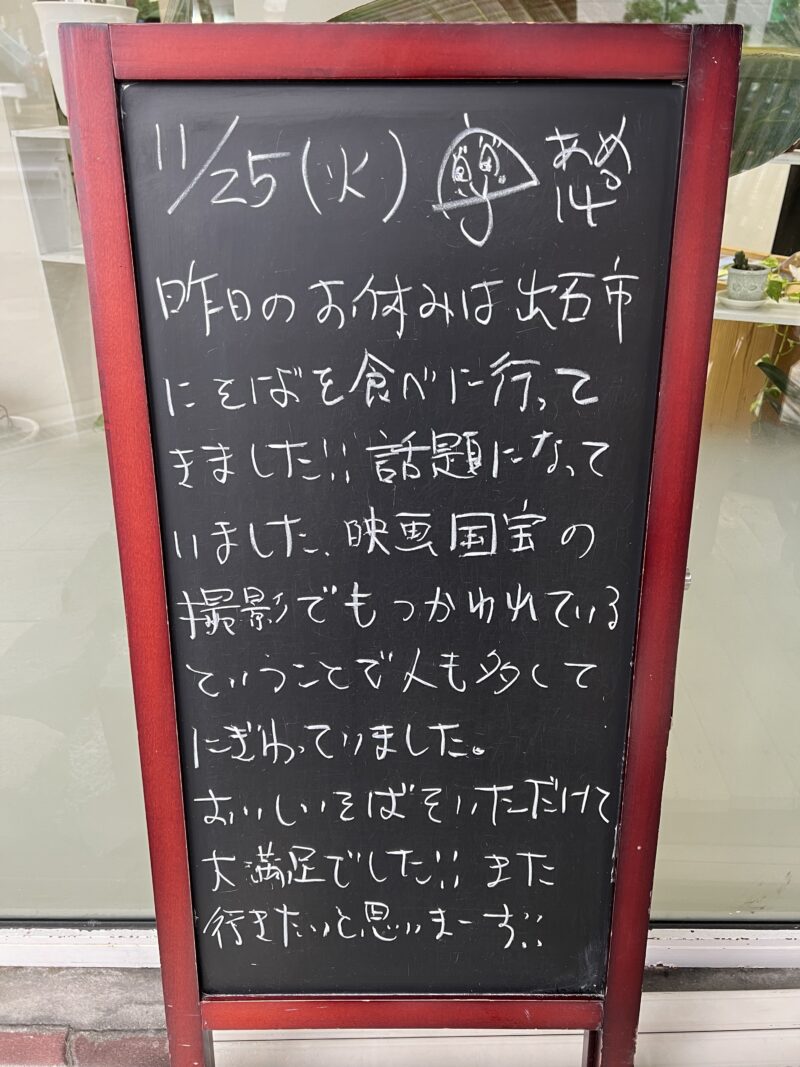 11/25(火) あめ
14°
昨日のお休みは出石市
にそばを食べに行って
きました!! 話題になって
いました、映画国宝の
撮影でもつかわれている
ということで人も多くして
にぎわっていました。
おいしいそばをいただけて
大満足でした!! また
行きたいと思いまーす!!